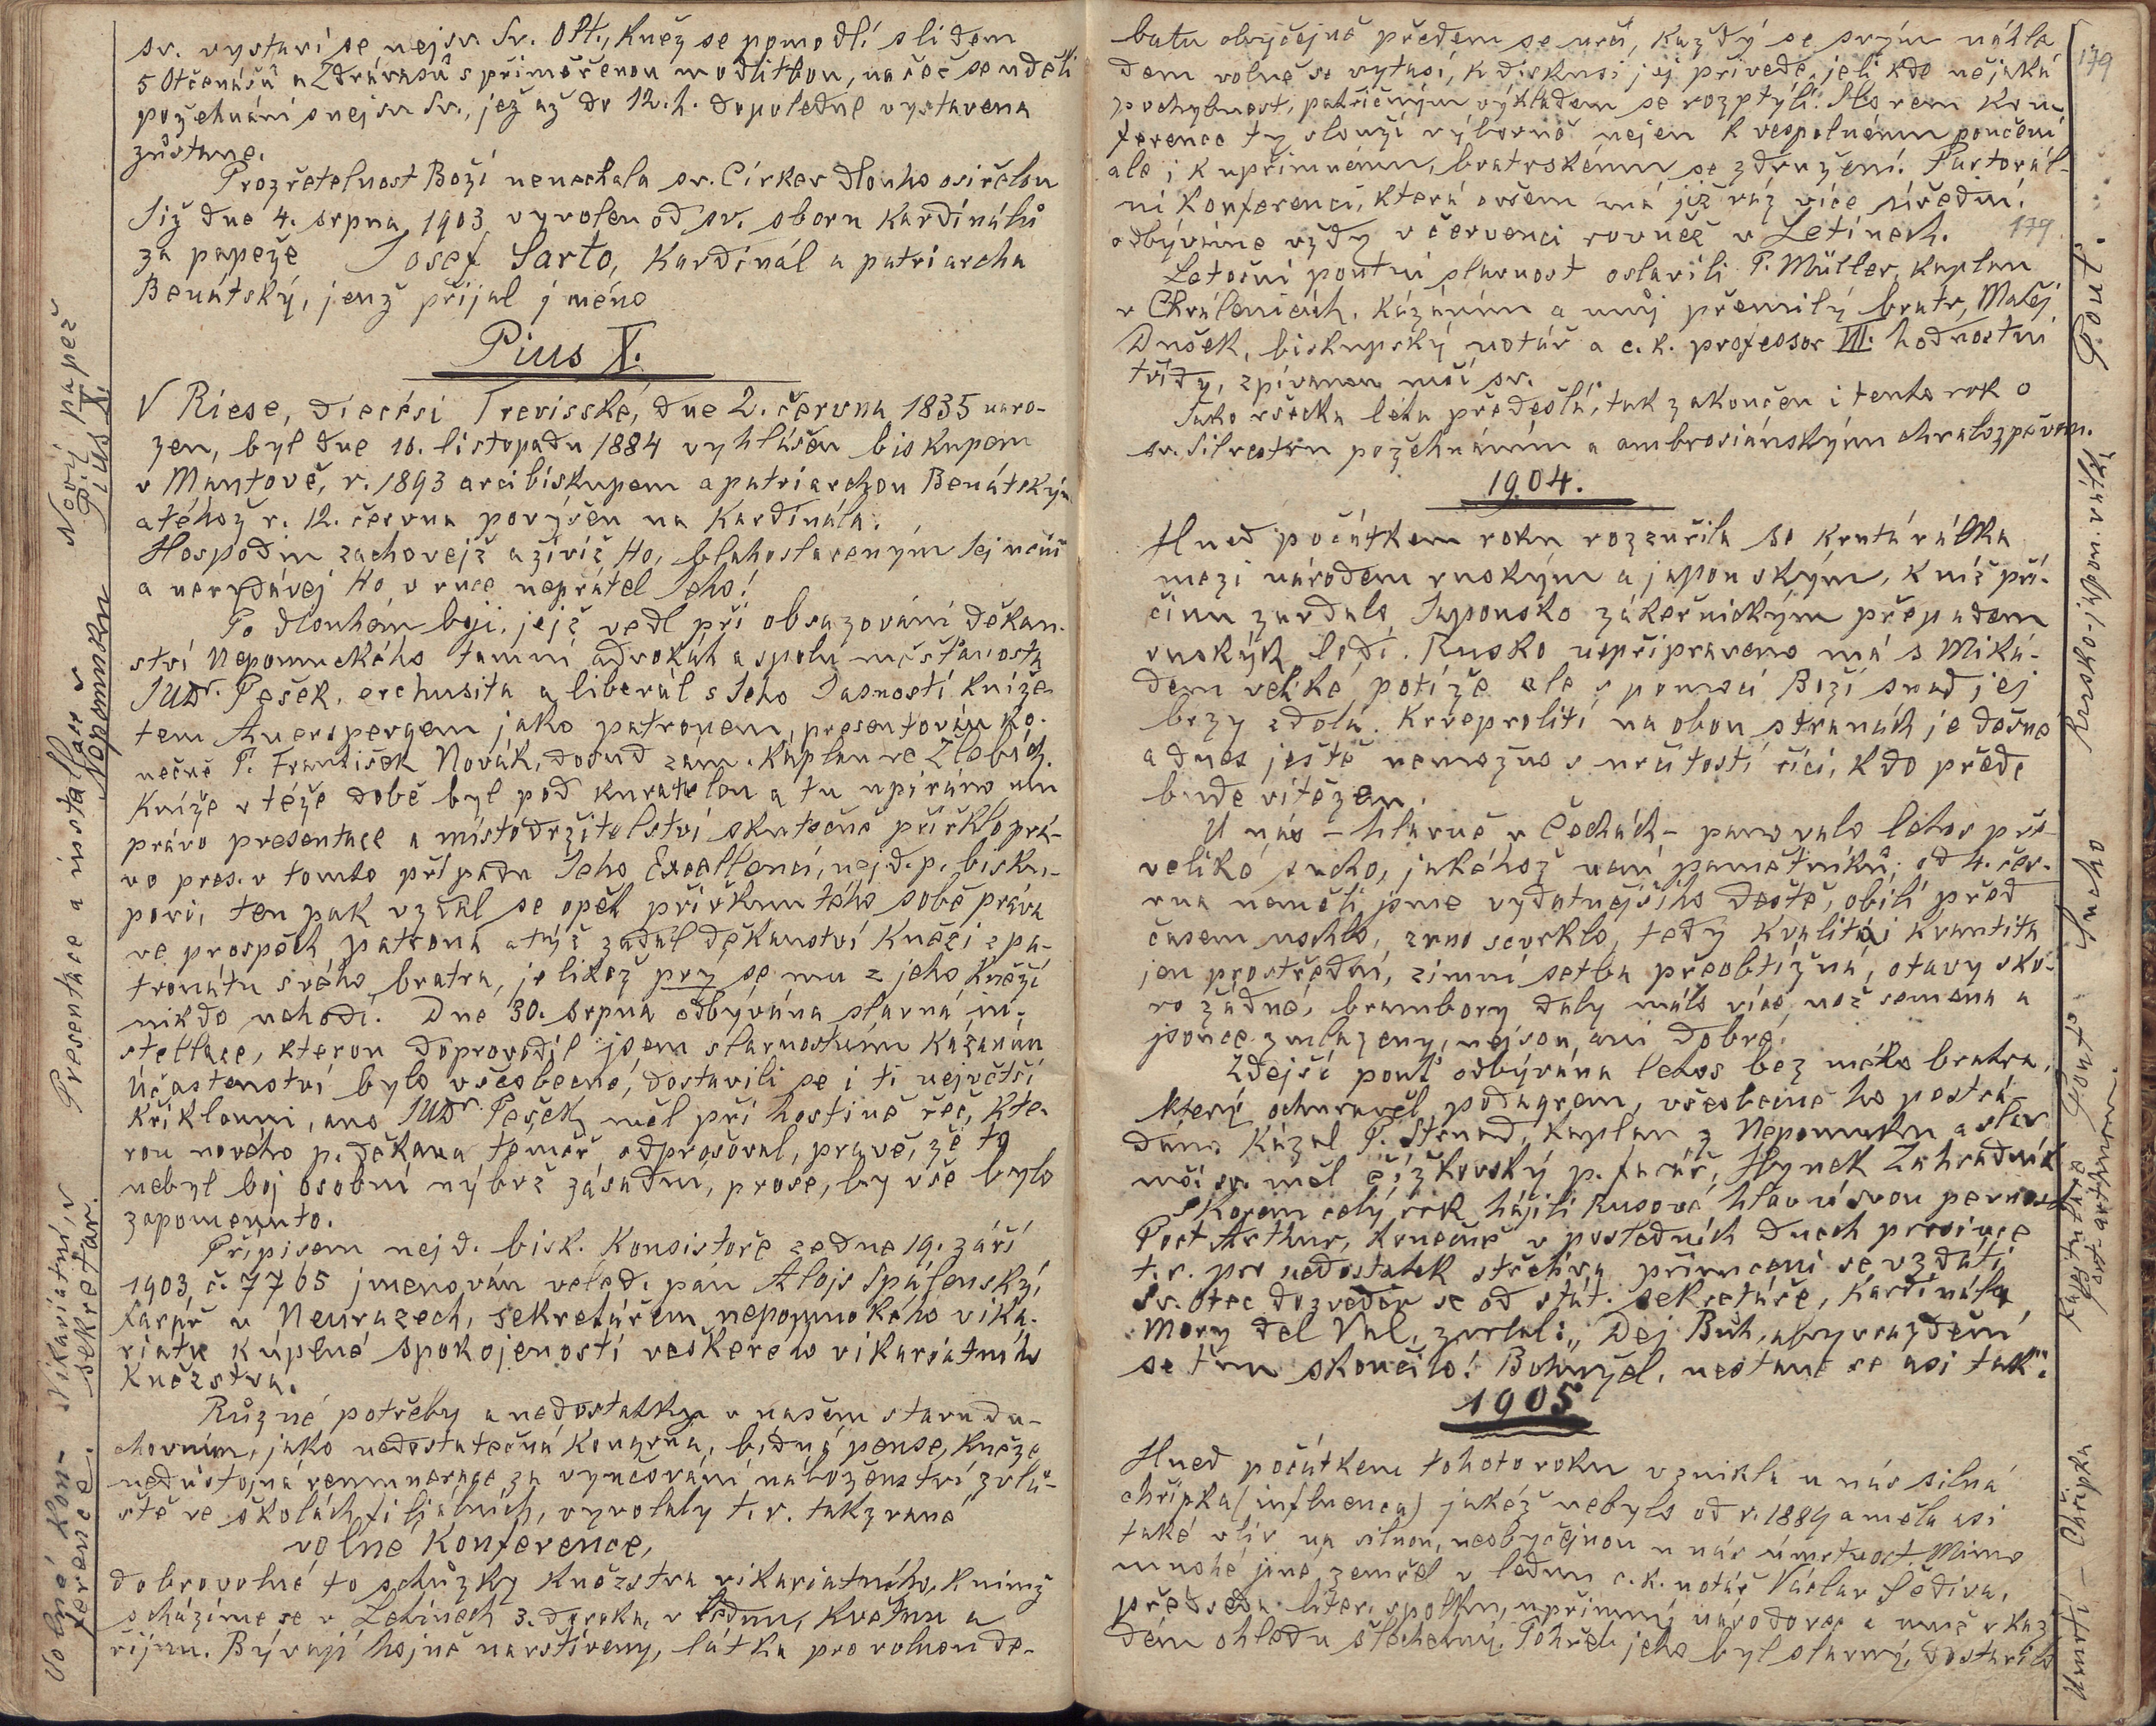 sv. vystaví se nejsv. Sv. Olt., kněz se pomodlí s lidem
5 Otčenášů a Zdrávasů s přiměřenou modlitbou, načež se udělí
požehnání s nejsv. Sv., jež až do 12. h. dopoledne vystavena
zůstane.
Prozřetelnost Boží nenechala sv. Církev dlouho osiřelou
Již dne 4. srpna 1903 vyvolen od sv. sboru Kardinálů
za papeže Josef Sarto, Kardinál a patriarcha
Benátský, jenž přijal jméno
Pius X.
V Riese, diecési Trevisské, dne 2. června 1835 naro-
zen, byl dne 10. listopadu 1884 vyhlášen biskupem
v Mantově, r. 1893 arcibiskupem a patriarchou Benátským
a téhož r. 12. června povýšen na Kardinála.
Hospodin zachovejž a živiž Ho, blahoslaveným Jej učiň
a nevydávej Ho v ruce nepřátel Jeho!
Po dlouhém boji, jejž vedl při obsazování děkan-
ství Nepomuckého tamní advokát a spolu měšťanosta
JUDr. Pešek, erchusita a liberál s Jeho Jasností kníže-
tem Auerspergem jako patronem, presentován ko-
nečně P. František Novák, dosud zám. kaplan ve Žlebích.
Kníže v téže době byl pod kuratelou a tu upíráno mu
právo presentace a místodržitelství skutečně přiřklo prá-
vo pres. v tomto případu Jeho Excellenci, nejd. p. bisku-
povi, ten pak vzdal se opět přiřknutého sobě práva
ve prospěch patrona a týž zadal děkanství knězi z pa-
tronátu svého bratra, jelikož prý se mu z jeho kněží
nikdo nehodí. Dne 30. srpna odbývána slavná in-
stallace, kterou doprovodil jsem slavnostním kázáním
Účastenství bylo všeobecné, dostavili se i ti největší
křiklouni, ano JUDr. Pešek měl při hostině řeč, kte-
rou nového p. děkana téměř odprošoval, pravě, že to
nebyl boj osobní nýbrž zásadní, prose, by vše bylo
zapomenuto.
Přípisem nejd. bisk. Konsistoře ze dne 19. září
1903, č. 7765 jmenován veled. pán Alojs Spálenský,
farář v Neurazech, sekretářem nepomuckého viká-
riátu k úplné spokojenosti veškerého vikariátního
kněžstva.
Různé potřeby a nedostatky v našem stavu du-
chovním, jako nedostatečná kongrua, bídná pense, kněze
nedůstojná remunerace za vyučování náboženství zvlá-
ště ve školách filiálních, vyvolaly t. r. takzvané
volné Konference,
dobrovolné to schůzky kněžstva vikariátního, k nimž
scházíme se v Letinech 3. do roka, v lednu, květnu a
říjnu. Bývají hojně navštíveny, látka pro volnou de-
Nový papež
Pius X.
Presentace a installace
v Nepomuku
Vikariátní
sekretář.
Volné kon-
ference.
batu obyčejně předem se určí, každý se svým náhle-
dem volně se vytasí, k diskusi jej přivede, jeli kde nějaká
pochybnost, patřičným výkladem se rozptýlí. Slovem kon-
ference ty slouží výborně nejen k vespolnému poučení
ale i k upřímnému, bratrskému se združení. Pastorál-
ní konferenci, která ovšem má již ráz více úřední,
odbýváme vždy v červenci rovněž v Letinech.
179
Letošní poutní slavnost oslavili P. Müller, kaplan
v Chválenicích, kázáním a můj přemilý bratr, Matěj
Dušek, biskupský notář a c. k. professor VII. hodnostní
třídy, zpívanou mší sv.
Jako všecka léta předešlá, tak zakončen i tento rok o
sv. Silvestru požehnáním a ambrosiánským chvalozpěvem.
1904.
Hned počátkem roku rozzuřila se krutá válka
mezi národem ruským a japonským, k níž pří-
činu zavdalo Japonsko zákeřnickým přepadem
ruských lodí. Rusko nepřipraveno má s Miká-
dem veliké potíže ale s pomocí Boží snad jej
brzy zdolá. Krveprolití na obou stranách je děsné
a dnes ještě nemožno s určitostí říci, kdo přede
bude vítězem.
U nás – hlavně v Čechách – panovalo letos pře-
veliké sucho, jakéhož není pamětníků; od 4. čer-
vna neměli jsme vydatnějšího deště, obilí před
časem uschlo, zrno scvrklo, tedy kvalita i kvantita
jen prostřední, zimní setba přeobtížná, otavy sko-
ro žádné, brambory daly málo více než semena a
jsouce zmlazeny, nejsou ani dobré.
Zdejší pouť odbývána letos bez mého bratra,
který ochuravěl podagrou, všeobecně ho postrá-
dáno. Kázal P. Strnad, kaplan z Nepomuku a slav.
mši sv. měl čížkovský p. farář, Hynek Zahradník
Skorem celý rok hájili Rusové hlavní svou pevnost
Port Arthur, konečně v posledních dnech prosince
t. r. pro nedostatek střeliva přinuceni se vzdáti
Sv. Otec dozvěděv se od stát. sekretáře, kardinála
Mery del Val, zvolal: „Dej Bůh, aby vraždění
se tím skončilo! Bohužel, nestane se asi tak“.
1905
Hned počátkem tohoto roku vznikla u nás silná
chřipka (influenca) jakéž nebylo od r. 1889 a měla asi
také vliv na silnou, neobyčejnou u nás úmrtnost. Mimo
mnohé jiné zemřel v lednu c. k. notář Václav Šediva,
předseda liter. spolku, upřímný národovec a muž v kaž-
dém ohledu šlechetný. Pohřeb jeho byl slavný, dostavilo
179
Pouť.
Rusko-japon. válka
Sucho
Pouť
Kapitulace
Port-Arthuru
Úmrtí – Chřipka